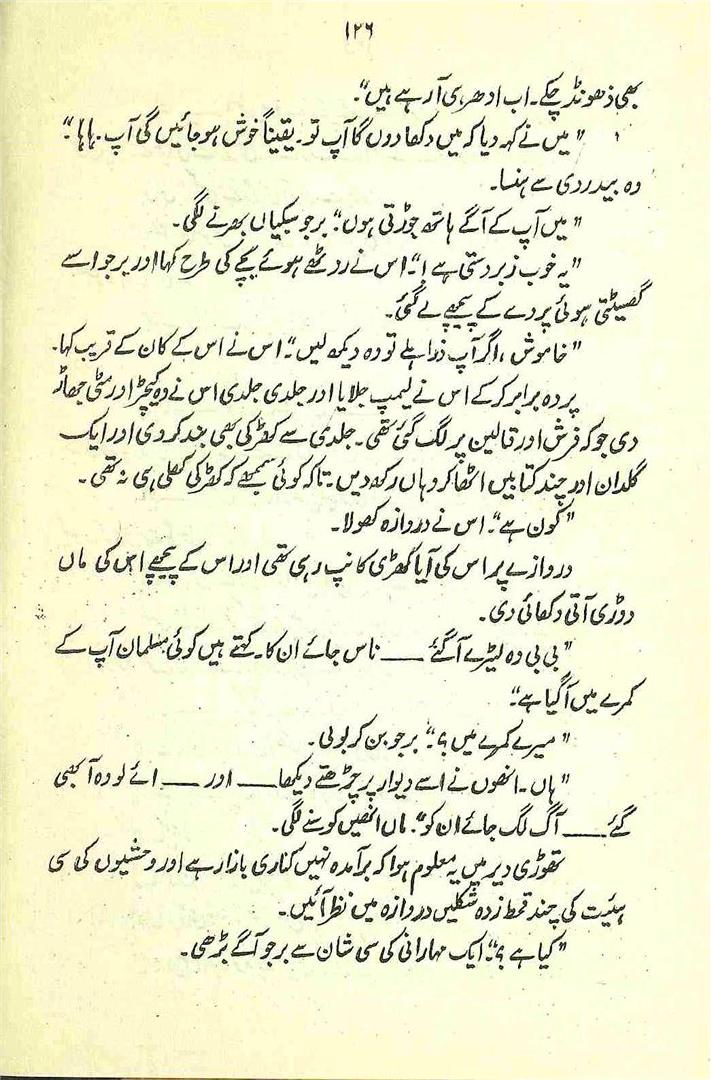 ۱۲۶
بھی ڈھونڈ چکے۔ اب ادھر ہی آرہے ہیں"۔
"میں نے کہہ دیا کہ میں دکھا دوں گا آپ تو۔ یقیناً خوش ہو جائیں گی آپ۔ ہاہا"۔
وہ بیدردی سے ہنسا۔
"میں آپ کے آگے ہاتھ جوڑتی ہوں"۔ برجو سسکیاں بھرنے لگی۔
"یہ خوب زبردستی ہے!"۔ اس نے روٹھے ہوئے بچے کی طرح کہا اور برجو اسے
گھسیٹتی ہوئی پردے کے پیچھے لے گئی۔
"خاموش، اگر آپ ذرا ہلے تو وہ دیکھ لیں"۔ اس نے اس کے کان کے قریب کہا۔
پردہ برابر کر کے اس نے لیمپ جلایا اور جلدی جلدی اس نے وہ کیچڑ اور مٹی جھاڑ
دی جو کہ فرش اور قالین پر لگ گئی تھی۔ جلدی سے کھڑکی بھی بند کر دی اور ایک
گلدان اور چند کتابیں اٹھا کر وہاں رکھ دیں۔ تاکہ کوئی سمجھے کہ کھڑکی کھلی ہی نہ تھی۔
"کون ہے"۔ اس نے دروازہ کھولا۔
دروازے پر اس کی آیا کھڑی کانپ رہی تھی اور اس کے پیچھے اس کی ماں
دوڑی آتی دکھائی دی۔
"بی بی وہ لیٹرے آگئے ــــ ناس جائے ان کا۔ کہتے ہیں کوئی مسلمان آپ کے
کمرے میں آگیا ہے"۔
"میرے کمرے میں؟"۔ برجو بن کر بولی۔
"ہاں۔ انھوں نے اسے دیوار پر چڑھتے دیکھا ــــ اور ــــ ائے لو وہ آ بھی
گئے ــــ آگ لگ جائے ان کو"۔ ماں انھیں کوسنے لگی۔
تھوڑی دیر میں یہ معلوم ہوا کہ برآمدہ نہیں کناری بازار ہے اور وحشیوں کی سی
ہیئت کی چند قحط زدہ شکلیں دروازہ میں نظر آئیں۔
"کیا ہے؟"۔ ایک مہارانی کی سی شان سے برجو آگے بڑھی۔